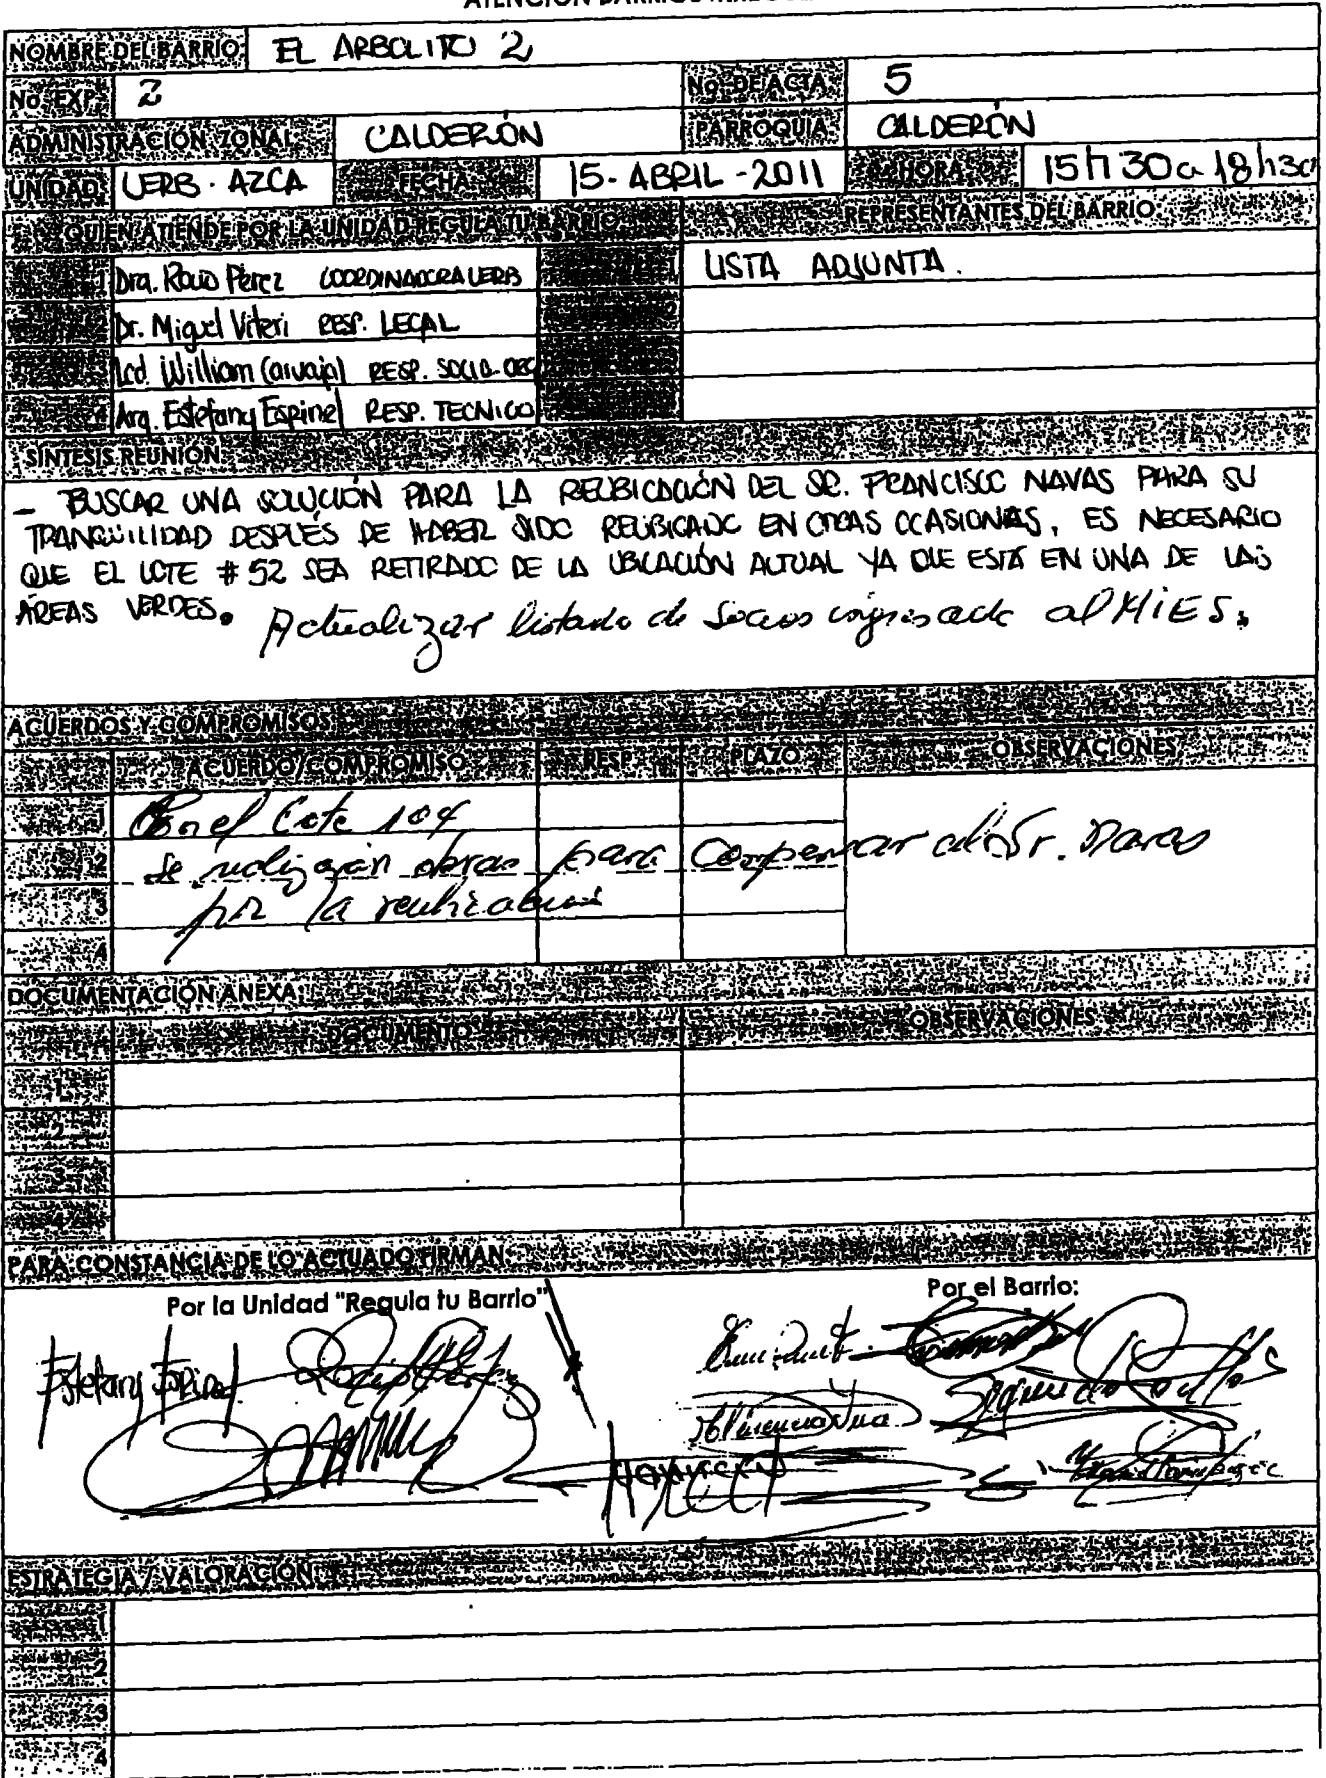 NOMBRE DEL BARRIO: EL ARBOLITO 2
No. EXP: 2 No. DE ACTA: 5
ADMINISTRACIÓN ZONAL: CALDERÓN PARROQUIA: CALDERÓN
UNIDAD: UERB - AZCA FECHA: 15 - ABRIL - 2011 HORA: 15h30 a 18h30
QUIEN ATIENDE POR LA UNIDAD REGULA TU BARRIO: REPRESENTANTES DEL BARRIO:
1 Dra. Rocío Pérez COORDINADORA UERB LISTA ADJUNTA.
Dr. Miguel Viteri RESP. LEGAL
Lcd. William Carvajal RESP. SOCIO-ORG
4 Arq. Estefany Espinel RESP. TECNICO
SÍNTESIS REUNIÓN:
- BUSCAR UNA SOLUCIÓN PARA LA REUBICACIÓN DEL SR. FRANCISCO NAVAS PARA SU
TRANQUILIDAD DESPUÉS DE HABER SIDO REUBICADO EN OTRAS OCASIONES, ES NECESARIO
QUE EL LOTE # 52 SEA RETIRADO DE LA UBICACIÓN ACTUAL YA QUE ESTÁ EN UNA DE LAS
ÁREAS VERDES. Actualizar listado de Socios ingresado al MIES.
ACUERDOS Y COMPROMISOS:
ACUERDO/COMPROMISO RESP. PLAZO OBSERVACIONES
1 En el Lote 104
2 Se realizarán obras para Compensar al Sr. Navas
3 por la reubicación
4
DOCUMENTACIÓN ANEXA:
DOCUMENTO OBSERVACIONES
1
2
3
4
PARA CONSTANCIA DE LO ACTUADO FIRMAN:
Por la Unidad "Regula tu Barrio" Por el Barrio:
Estefany Espinel
ESTRATEGIA / VALORACIÓN:
1
2
3
4